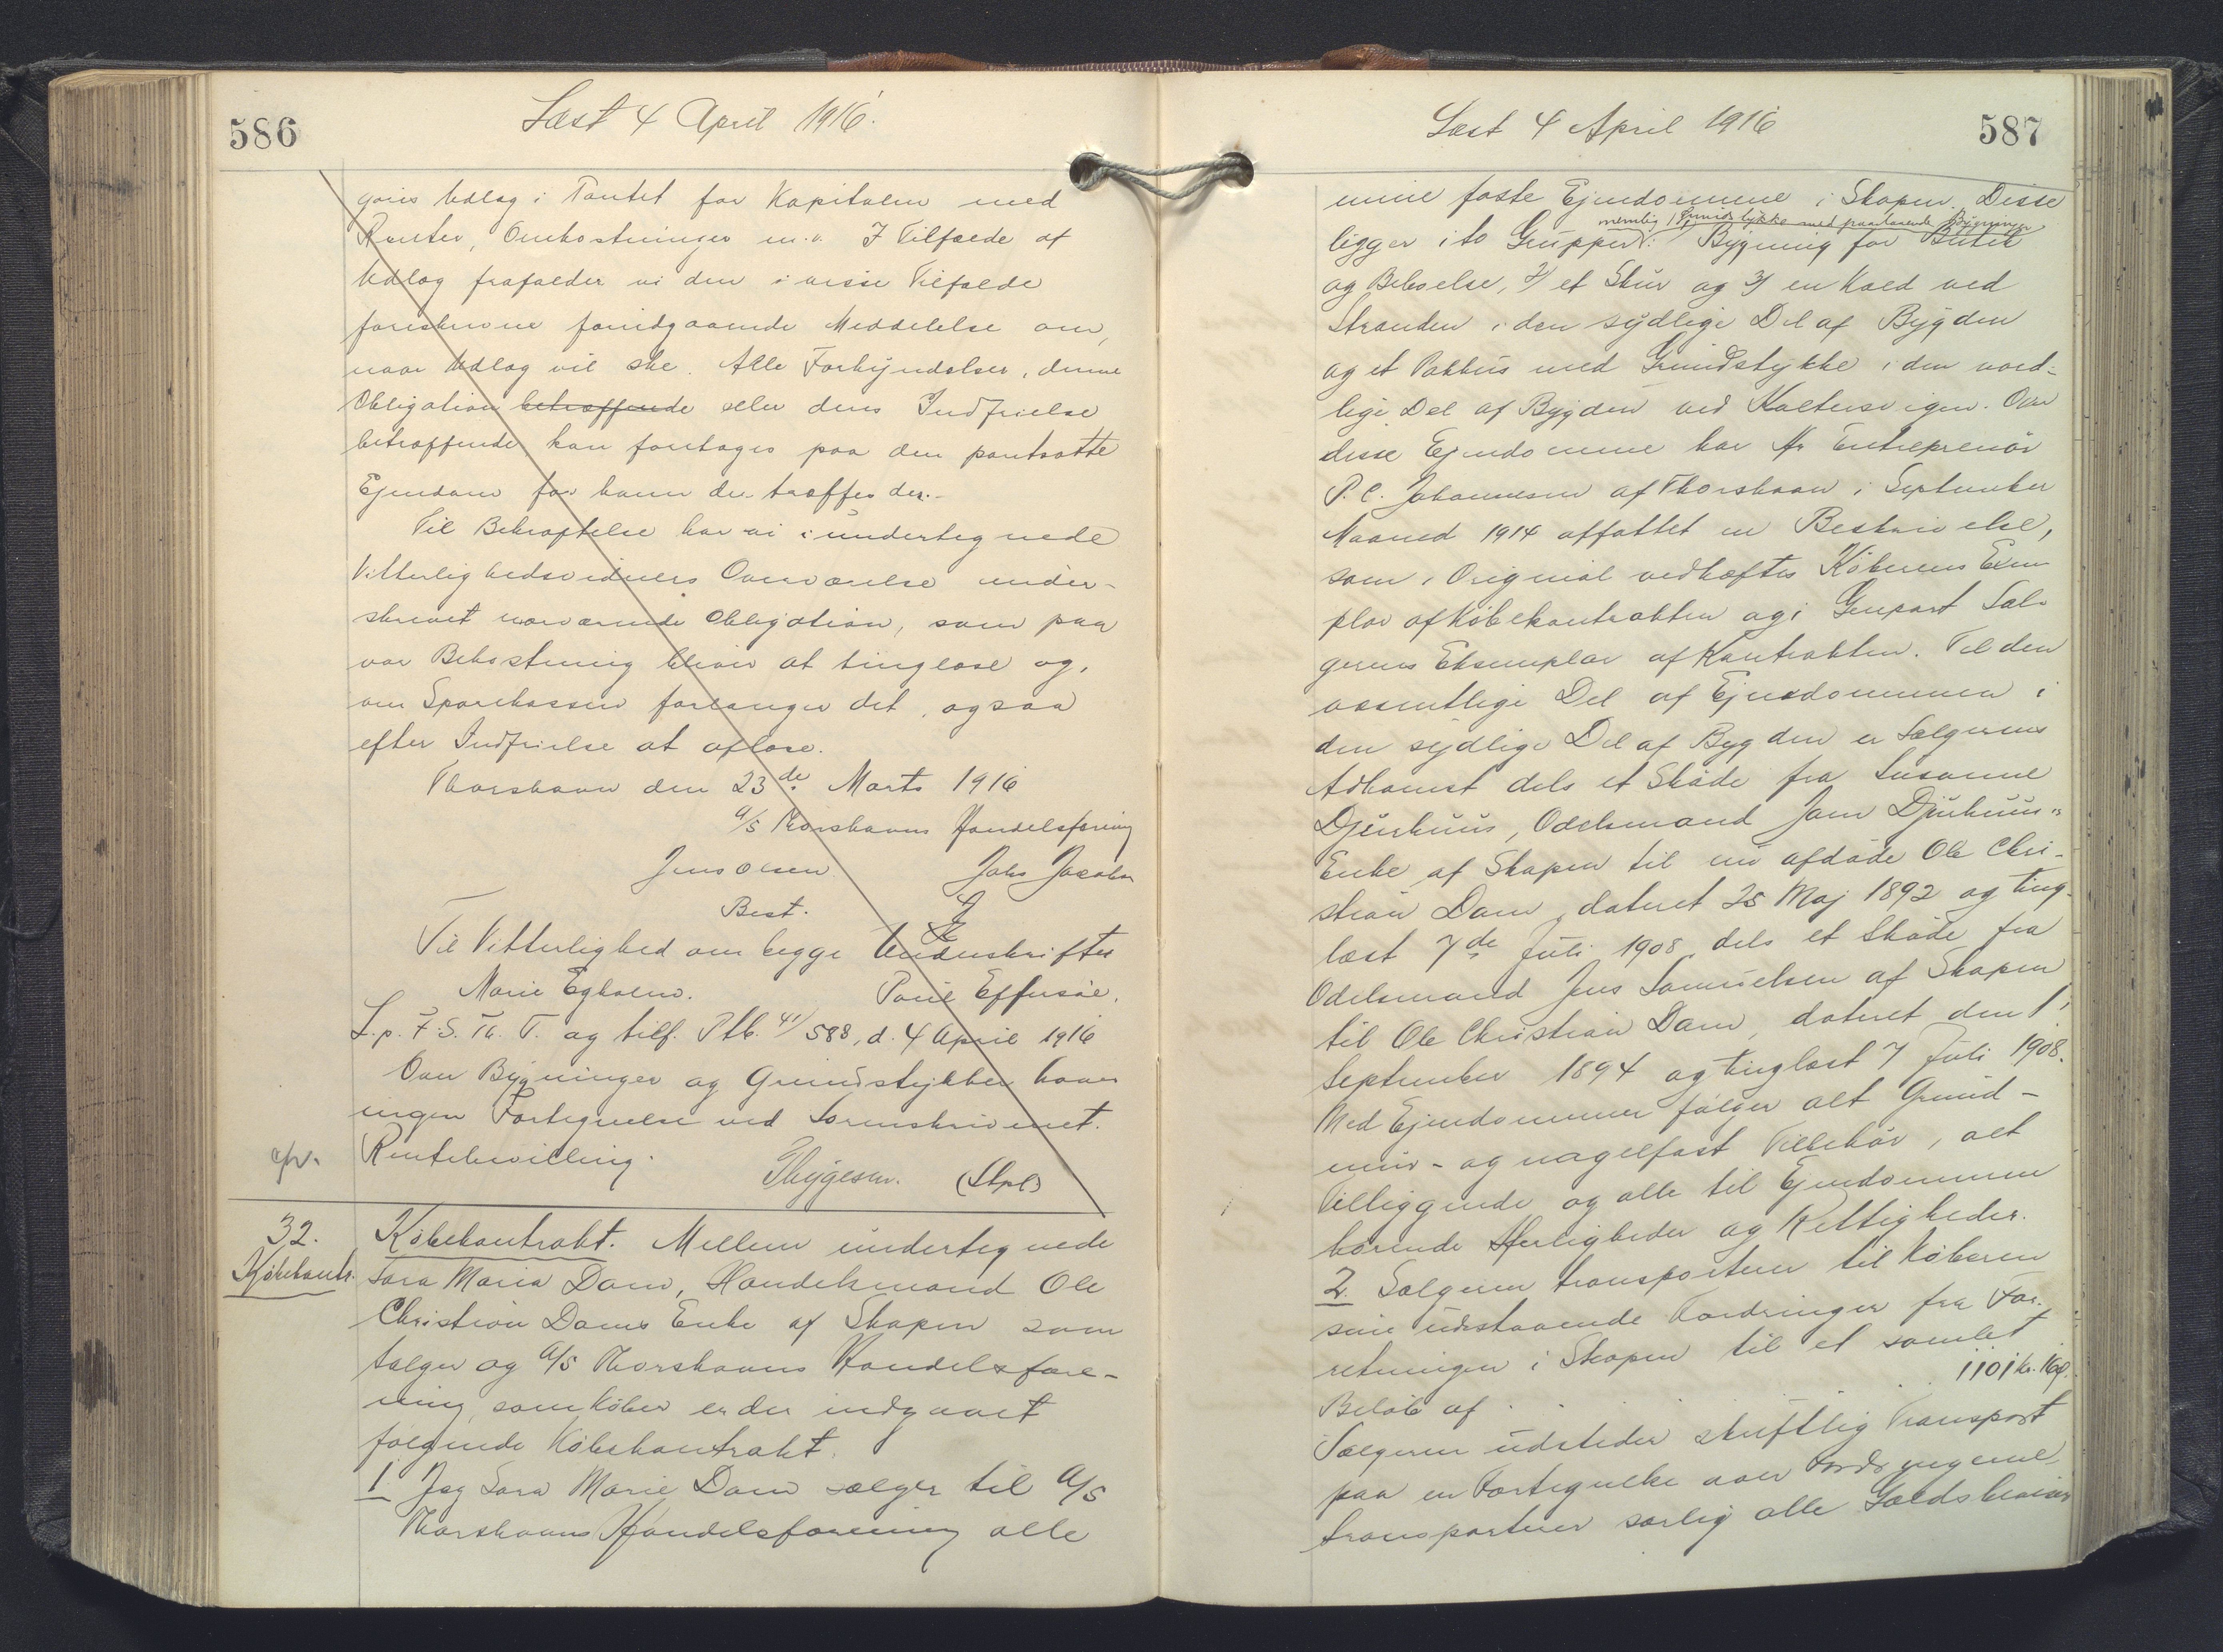 586
Læst 4 April 1916.
gøres Udlæg i Pantet for Kapitalen med
Renter, Omkostninger m.v. I Tilfælde af
Udlæg frafalder vi den i visse Tilfælde
foreskrevne forudgaaende Meddelelse om,
naar Udlæg vil ske. Alle Forkyndelser, denne
Obligation betræffende eller dens Indfrielse
betræffende kan foretages paa den pantsatte
Ejendom for hvem der træffes der.-
Til Bekræftelse har vi i undertegnede
Vitterlighedsvidners Overværelse under-
skrevet nærværende Obligation, som paa
vor Bekostning bliver at tinglæse og,
om Sparekassen forlanger det, ogsaa
efter Indfrielse at aflæse.
Thorshavn den 23de Marts 1916
A/S Thorshavns Handelsforening
Jens Olsen Johs Jacobsen
Best.
Til Vitterlighed om begge Underskrifter
Marie Egholm. Poul Effersøe.
L.p. F.S. Th. T. og tilf. Ptb. 41/588, d. 4 April 1916
Over Bygninger og Grundstykker haves
ingen Fortegnelse ved Sorenskriveriet.
Rentebevilling.
Thygesen. (Stpl)
32.
Købekontr.
Købekontrakt. Mellem undertegnede
Sara Maria Dam, Handelsmand Ole
Christian Dams Enke af Skapen som
Sælger og A/S Thorshavns Handelsfore-
ning, som Køber er der indgaaet
følgende Købekontrakt.
1. Jeg Sara Marie Dam sælger til A/S
Thorshavns Handelsforening alle
587
Læst 4 April 1916
mine faste Ejendomme i Skapen. Disse
nemlig 1/ Grundstykke med paastaaende Bygninger
ligger i to Grupper: Bygning for Butik
og Beboelse, 2/ et Skur og 3/ en Kæld ved
Stranden i den sydlige Del af Bygden
og et Pakhus med Grundstykke i den nord-
lige Del af Bygden ved . Over
disse Ejendomme har Hr Entreprenør
P.C. Johannesen af Thorshavn i September
Maaned 1914 affattet en Beskrivelse,
som i Original vedhæftes Køberens Exem
plar af Købekontrakten og i Genpart Sæl-
gerens Eksemplar af Kontrakten. Til den
væsentlige Del af Ejendommen i
den sydlige Del af Bygden er Sælgerens
Adkomst dels et Skøde fra Susanne
Djurhuus, Odelsmand Djurhuus's
Enke af Skapen til nu afdøde Ole Chri-
stian Dam, dateret 25 Maj 1892 og ting-
læst 7de Juli 1908, dels et Skøde fra
Odelsmand Jens Samuelsen af Skapen
til Ole Christian Dam, dateret den 1'
September 1894 og tinglæst 7 Juli 1908.
Med Ejendommen følger alt Grund-
mur- og nagelfast Tilbehør, alt
Tilliggende og alle til Ejendommen
hørende Herligheder og Rettigheder.
2. Sælgeren transporterer til Køberen
sine udestaaende Fordringer fra For-
retningen i Skapen til et samlet
Beløb af . . . 1101 kr. 16 ø.
Sælgeren udsteder skriftlig Transport
paa en Fortegnelse over Fordringerne,
transporterer særlig alle Gældsbeviser